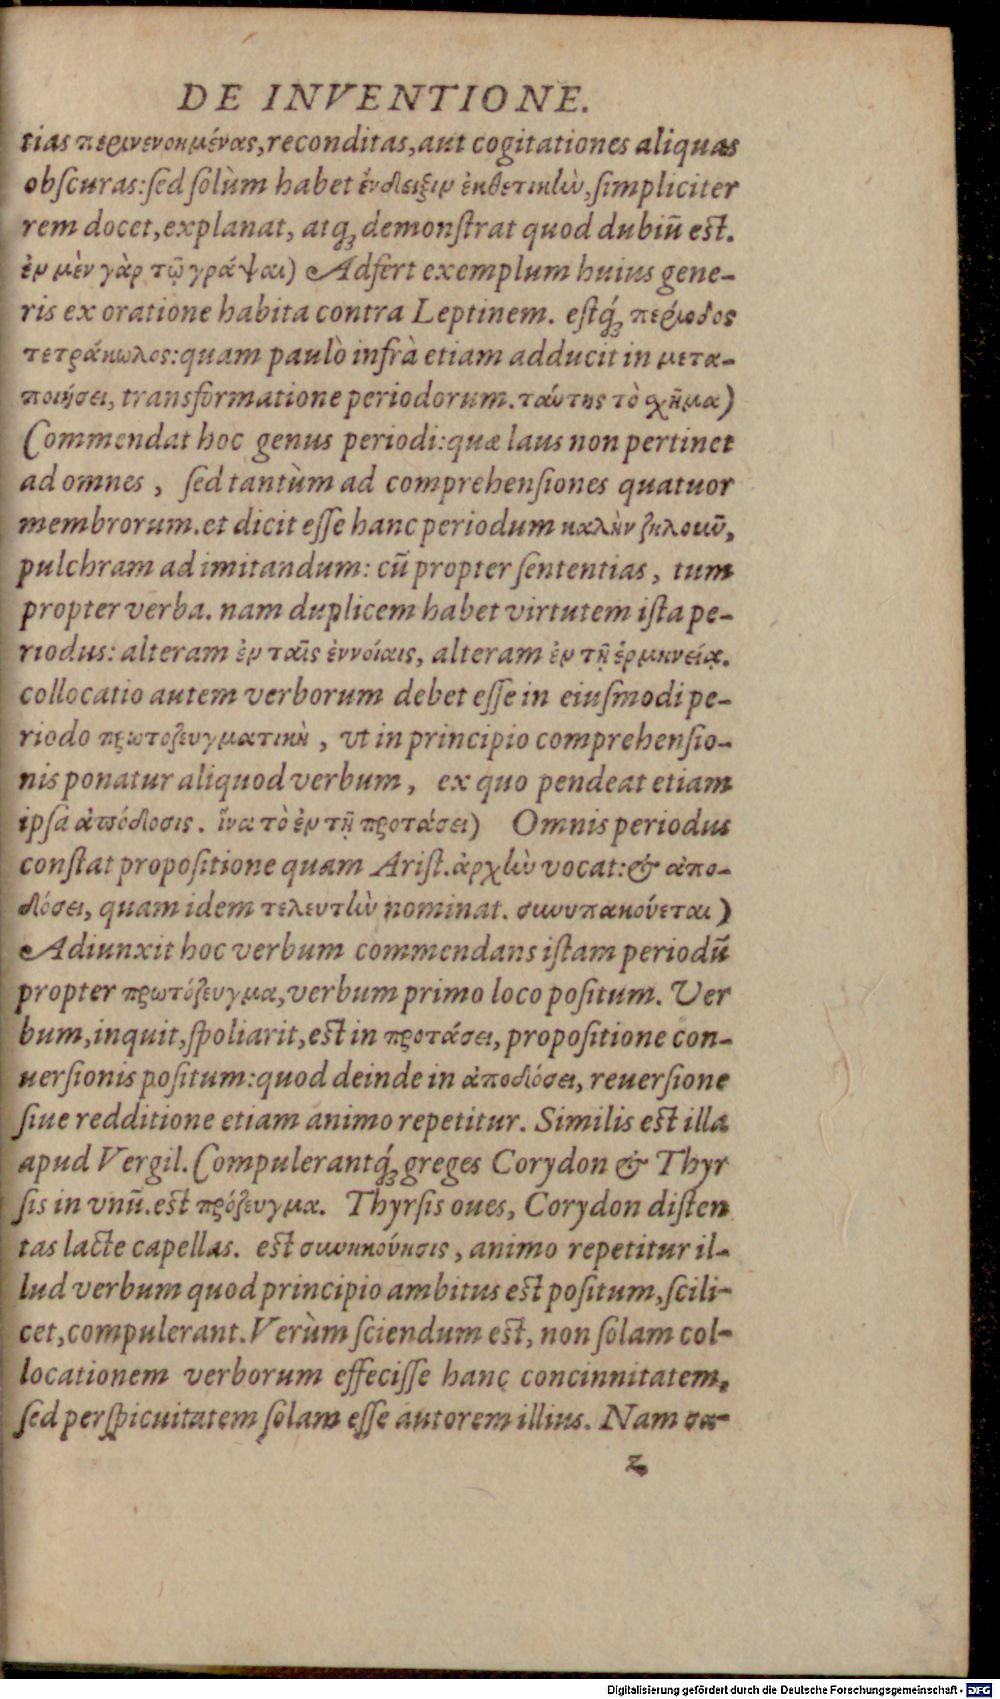 DE INVENTIONE.
tias περινενοημένας, reconditas, aut cogitationes aliquas
obscuras: sed solùm habet ἔνδειξιν ἐκθετικὴν, simpliciter
rem docet, explanat, atq́; demonstrat quod dubiũ est.
ἐν μὲν γὰρ τῷ γράψαι) Adfert exemplum huius gene-
ris ex oratione habita contra Leptinem. estq́; περίοδος
τετράκωλος: quam paulò infrà etiam adducit in μετα-
ποιήσει, transformatione periodorum. ταύτης τὸ σχῆμα)
Commendat hoc genus periodi: quæ laus non pertinet
ad omnes, sed tantùm ad comprehensiones quatuor
membrorum. et dicit esse hanc periodum καλὴν ζηλοῦν,
pulchram ad imitandum: cũ propter sententias, tum
propter verba. nam duplicem habet virtutem ista pe-
riodus: alteram ἐν ταῖς ἐννοίαις, alteram ἐν τῇ ἑρμηνείᾳ.
collocatio autem verborum debet esse in eiusmodi pe-
riodo πρωτοζευγματικὴ, vt in principio comprehensio-
nis ponatur aliquod verbum, ex quo pendeat etiam
ipsa ἀπόδοσις. ἵνα τὸ ἐν τῇ προτάσει) Omnis periodus
constat propositione quam Arist. ἀρχὴν vocat: & ἀπο-
δόσει, quam idem τελευτὴν nominat. συνυπακούεται)
Adiunxit hoc verbum commendans istam periodũ
propter πρωτόζευγμα, verbum primo loco positum. Ver
bum, inquit, spoliarit, est in προτάσει, propositione con-
uersionis positum: quod deinde in ἀποδόσει, reuersione
siue redditione etiam animo repetitur. Similis est illa
apud Vergil. Compulerantq́; greges Corydon & Thyr
sis in vnũ. est πρόζευγμα. Thyrsis oues, Corydon disten
tas lacte capellas. est συνηκούησις, animo repetitur il-
lud verbum quod principio ambitus est positum, scili-
cet, compulerant. Verùm sciendum est, non solam col-
locationem verborum effecisse hanc concinnitatem,
sed perspicuitatem solam esse autorem illius. Nam σα-
z
Digitalisierung gefördert durch die Deutsche Forschungsgemeinschaft - DFG